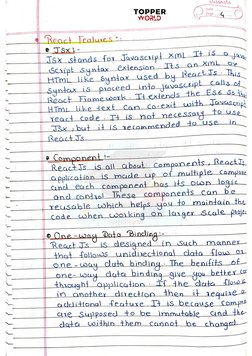 TOPPER
WORLD
4
React Features :-
JSX :-
JSX stands for Javascript XML. It is a java
Script Syntax extension. Its an XML or
HTML like Syntax used by ReactJs. This
Syntax is proceed into javascript calls of
React Framework. It extends the ES6 so the
HTML like text can co-exit with Javascript
react code. It is not necessary to use
JSX, but it is recommended to use in
ReactJs.
Component :-
ReactJs is all about components. ReactJs
application is made up of multiple compone
and each component has its own logic
and control. These components can be
reusable which helps you to maintain the
code when working on larger scale projec
One-way Data Binding :-
ReactJs is designed in such manner
that follows unidirectional data flow or
one-way data binding. The benefits of
one-way data binding give you better co
throught application. If the data flow is
in another direction then it require a
additional feature. It is because compon
are supposed to be immutable and the
data within them cannot be changed.